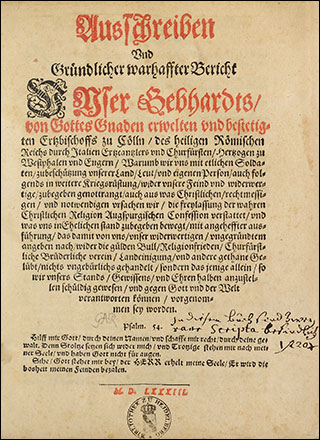 Ausschreiben
Vnd
Gründlicher warhaffter Bericht
VNser Gebhardts/
von Gottes Gnaden erwelten vnd bestetig-
ten Ertzbischoffs zu Cölln / des heiligen Römischen
Reichs durch Italien Ertzcantzlers vnd Churfürsten / Hertzogen zu
Westphalen vnd Engern / Warumb wir vns mit etlichen Solda-
ten / zubeschützung vnserer Land / Leut / vnd eigenen Person / auch folg-
ends in weitere Kriegsrüstung / wider vnsere Feind vnd widerwerti-
ge / zubegeben genotträngt / auch aus was Christlichen / rechtmessi-
gen / vnd notwendigen vrsachen wir / die freystellung der wahren
Christlichen Religion Augspurgischen Confession verstattet / vnd
was vns in Ehelichen stand zubegeben bewegt / mit angeheffter aus-
führung / das damit von vns / vnser widerwertigen / vngegründtem
angeben nach / wider die gülden Bull / Religionfrieden / Churfürst-
liche Brüderliche verein / Landeinigung / vnd andere gethane Ge-
lübt / nichts vngebürlichs gehandelt / sondern das jenige allein / so
wir vnsers Stands / Gewissens / vnd Ehren halben anzustel-
len schüldig gewesen / vnd gegen Gott vnd der Welt
verantworten können / vorgenom-
men sey worden.
Psalm. 54.
Hilff mir Gott / durch deinen Namen / vnd schaffe mir recht / durch deine ge-
walt. Denn Stoltze setzen sich wider mich / vnd Trotzige stehen mir nach mei-
ner Seele / vnd haben Gott nicht für augen.
Sihe / Gott stehet mir bey / der HERR erhelt meine Seele / Er wird die
bosheit meinen Feinden bezalen.
M. D. LXXXIII.